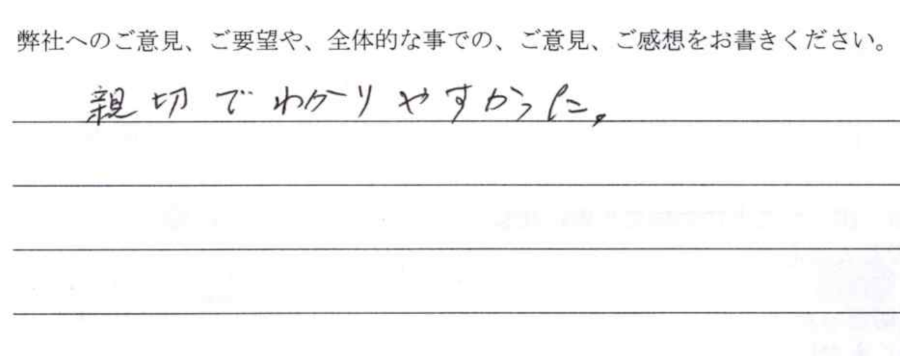 弊社へのご意見、ご要望や、全体的な事での、ご意見、ご感想をお書きください。
親切でわかりやすかった。